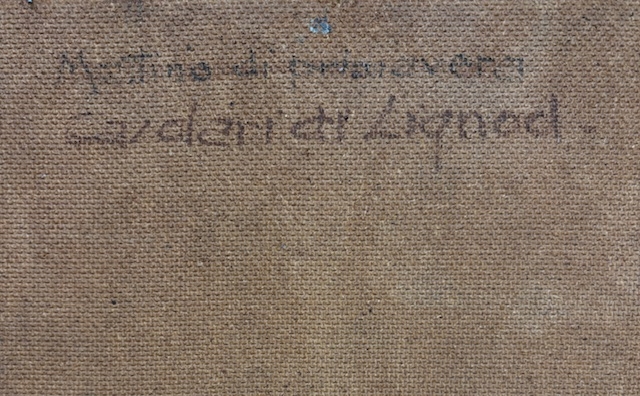 Mattino di primavera
di Lignod